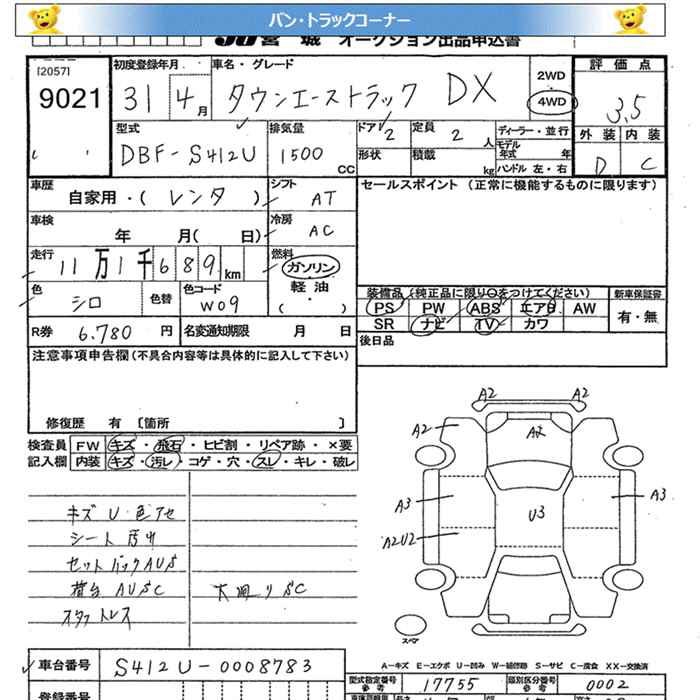 バン・トラックコーナー
JU 宮 城 オークション出品申込書
[2057]
9021
初度登録年月
31 4月
車名・グレード
タウンエーストラック DX
2WD
4WD
評価点
3.5
外装 内装
D C
型式
DBF-S412U
排気量
1500 CC
ドア 2
定員 2 人
形状
積載 kg
ディーラー・並行
モデル年式 年
ハンドル 左・右
車歴
自家用・( レンタ )
シフト
AT
セールスポイント (正常に機能するものに限ります)
車検
年 月( 日)
冷房
AC
走行
11万1千689 km
燃料
ガソリン
軽油
( ・ )
色
シロ
色替
色コード
W09
装備品(純正品に限り○をつけてください)
PS PW ABS エアB AW
SR ナビ TV カワ
新車保証書
有・無
R券 6.780 円
名変通期限 月 日
後日品
注意事項申告欄(不具合内容等は具体的に記入して下さい)
修復歴 有 [箇所 ]
検査員記入欄
FW キズ・飛石・ヒビ割・リペア跡・×要
内装 キズ・汚レ・コゲ・穴・スレ・キレ・破レ
キズ U 色アセ
シート 汚れ
荷台 AUSC
スタットレス
A2 A2
A2
A3
A2U2
U3
A3
スペア
A-キズ E-エクボ U-凹み W-補修跡 S-サビ C-腐食 XX-交換済
車台番号 S412U-0008783
型式指定番号 参考 17755
類別区分番号 参考 0002
登録番号